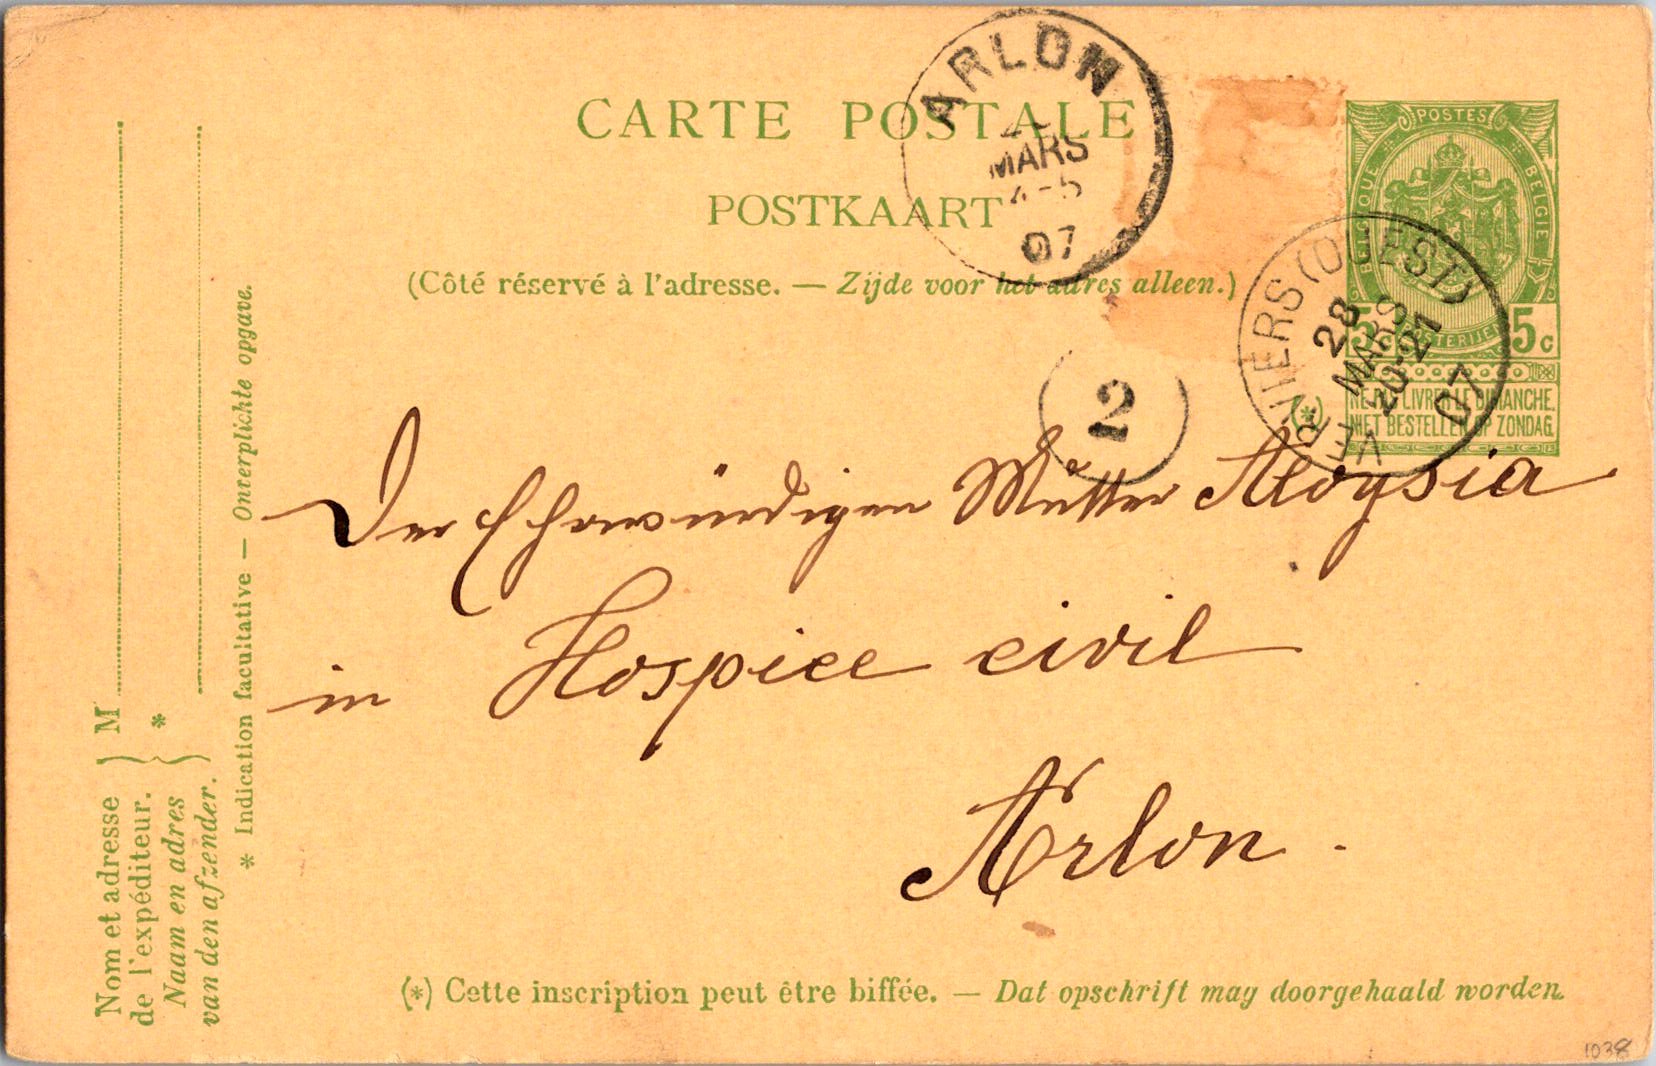 CARTE POSTALE
POSTKAART
(Côté réservé à l'adresse. — Zijde voor het adres alleen.)
ARLON
MARS
4-5
07
POSTES
BELGIQUE
BELGIE
POSTERIJEN
5c 5c
NE PAS LIVRER LE DIMANCHE.
NIET BESTELLEN OP ZONDAG.
(*)
VERVIERS (OUEST)
28
MARS
20-21
07
2
Der Ehrwürdigen Mutter Aloysia
in Hospice civil
Arlon.
Nom et adresse
de l'expéditeur.
Naam en adres
van den afzender.
M
*
* Indication facultative — Onverplichte opgave.
(*) Cette inscription peut être biffée. — Dat opschrift mag doorgehaald worden.
1038